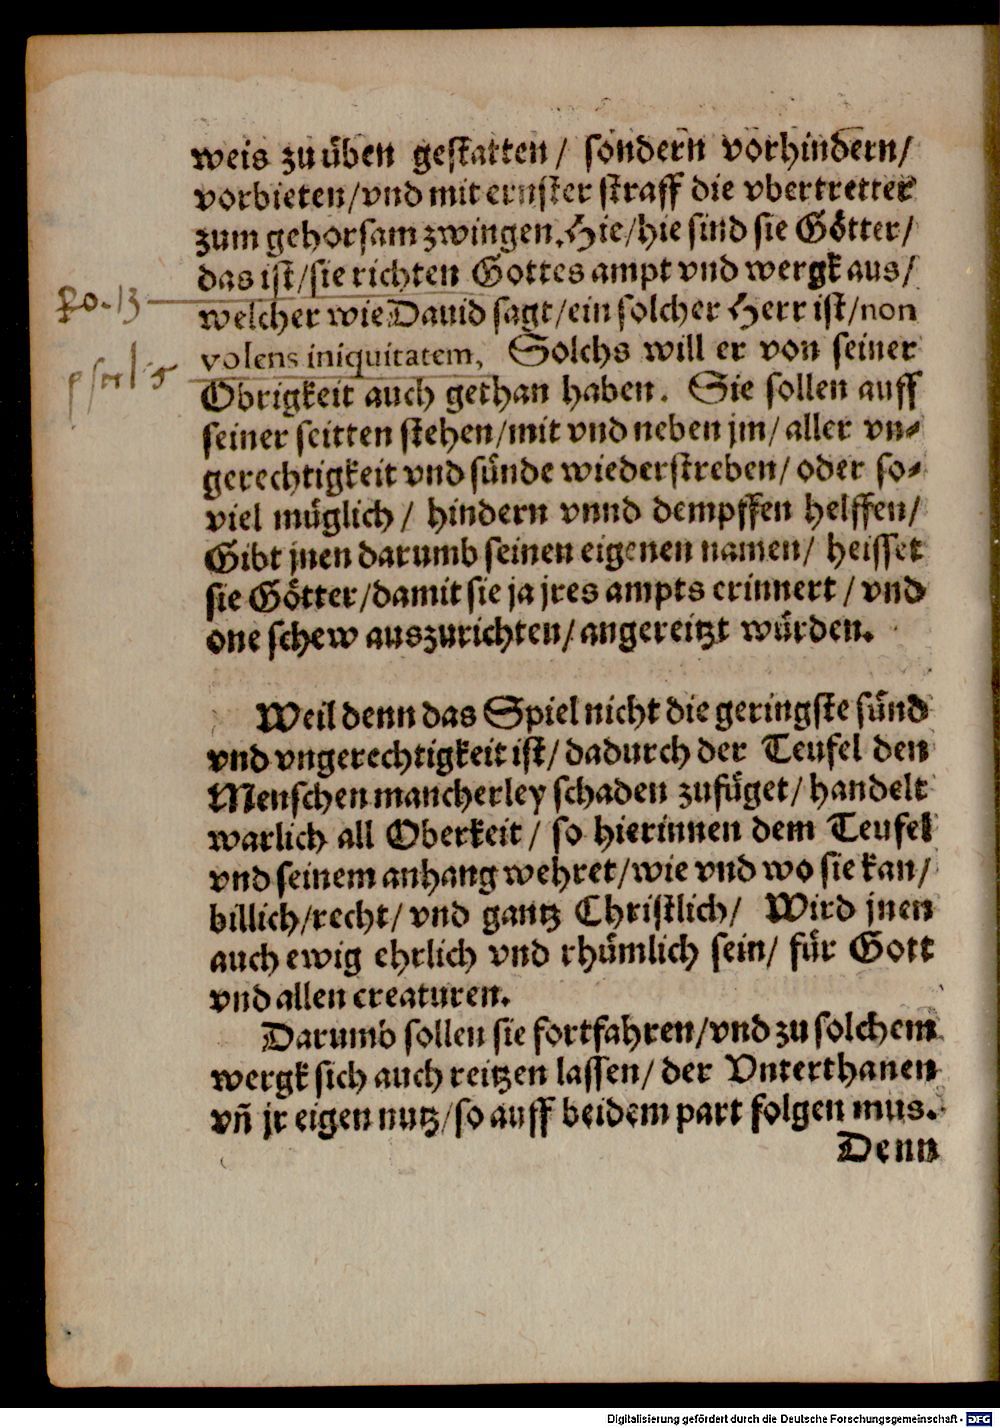 weis zu üben gestatten/ sondern vorhindern/
vorbieten/vnd mit ernster straff die vbertretter
zum gehorsam zwingen. Hie/hie sind sie Götter/
das ist/sie richten Gottes ampt vnd wergk aus/
Ro. 13
welcher wie Dauid sagt/ein solcher Herr ist/non
volens iniquitatem, Solchs will er von seiner
psal 5
Obrigkeit auch gethan haben. Sie sollen auff
seiner seitten stehen/mit vnd neben jm/ aller vn⸗
gerechtigkeit vnd sünde wiederstreben/ oder so⸗
viel müglich/ hindern vnnd dempffen helffen/
Gibt jnen darumb seinen eigenen namen/ heisset
sie Götter/damit sie ja jres ampts erinnert/ vnd
one schew auszurichten/angereitzt würden.
Weil denn das Spiel nicht die geringste sünd
vnd vngerechtigkeit ist/dadurch der Teufel den
Menschen mancherley schaden zufüget/ handelt
warlich all Oberkeit/ so hierinnen dem Teufel
vnd seinem anhang wehret/wie vnd wo sie kan/
billich/recht/ vnd gantz Christlich/ Wird jnen
auch ewig ehrlich vnd rhümlich sein/ für Gott
vnd allen creaturen.
Darumb sollen sie fortfahren/vnd zu solchem
wergk sich auch reitzen lassen/ der Vnterthanen
vñ jr eigen nutz/so auff beidem part folgen mus.
Denn
Digitalisierung gefördert durch die Deutsche Forschungsgemeinschaft - DFG